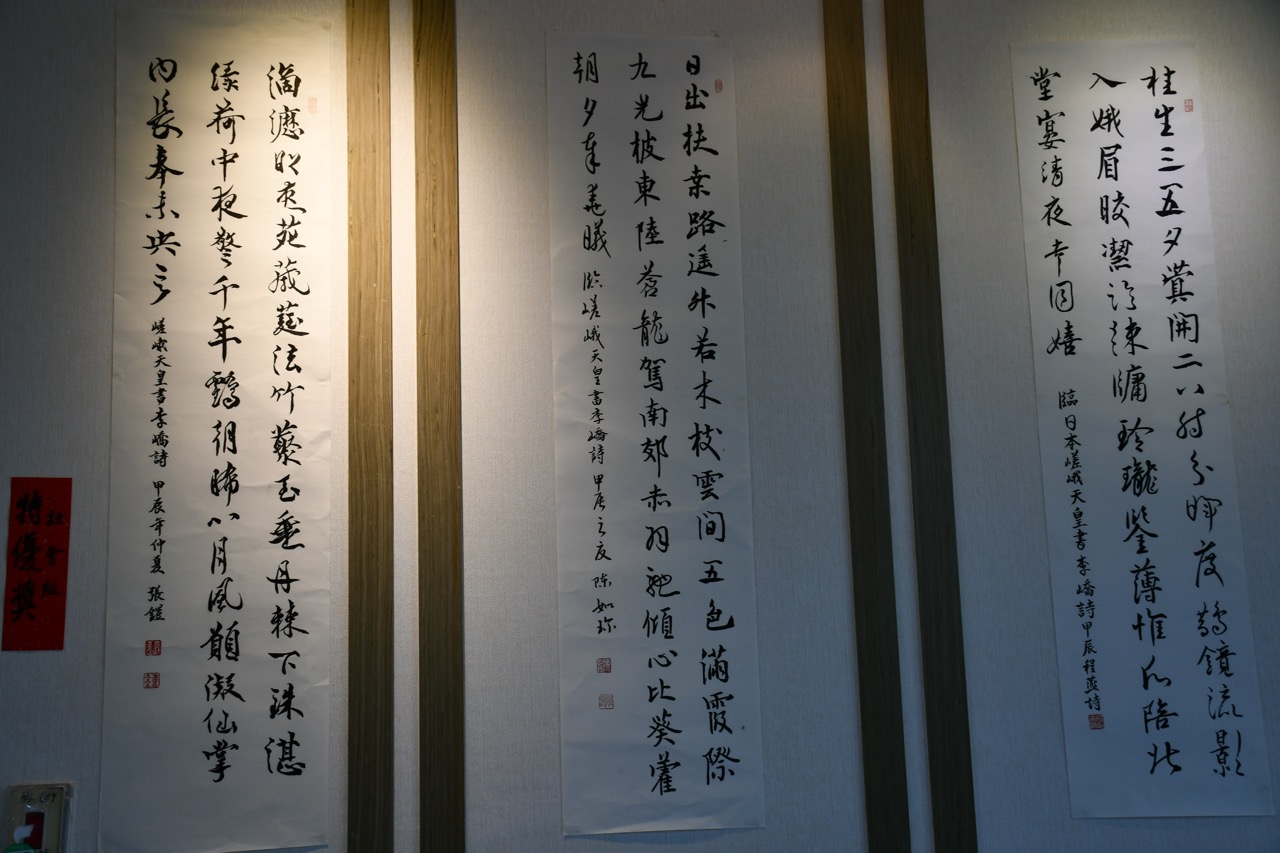 桂生三五夕蓂開二八時分暉度鵲鏡流影
入娥眉皎潔臨疎牖玲瓏鑒薄帷願陪北
堂宴清夜幸同嬉
臨日本嵯峨天皇書李嶠詩甲辰程燕詩
日出扶桒路遥升若木枝雲間五色滿霞際
九光披東陸蒼龍駕南郊赤羽馳傾心比葵藿
朝夕奉羲曦
臨嵯峨天皇書李嶠詩 甲辰之夏 陳如珍
滴瀝明花苑葳蕤泫竹叢玉垂丹棘下珠湛
緑荷中夜警千年鶴朝晞八月風願凝仙掌
内長奉未央宮
嵯峨天皇書李嶠詩 甲辰年仲夏 張鎧
社會組
特優獎